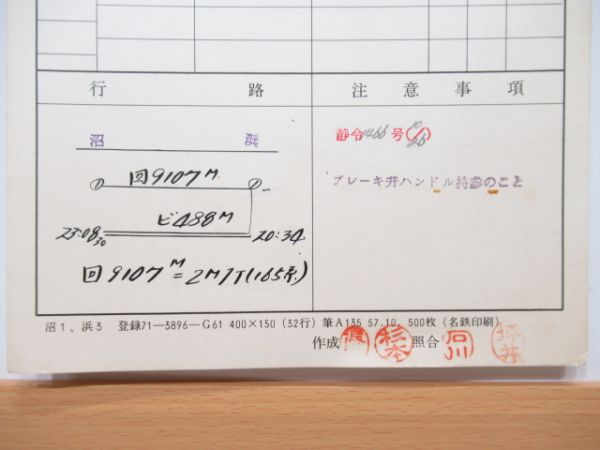 行路
注意事項
沼 浜
静令466号(10/26)
回9107M
ブレーキ弁ハンドル持参のこと
ビ488M
23:08 30
20:34
回9107M=2M1T(165系)
沼1、浜3 登録71—3896—G61 400×150 (32行) 筆A135 57.10. 500枚 (名鉄印刷)
作成 杉本 照合 石川 坪井